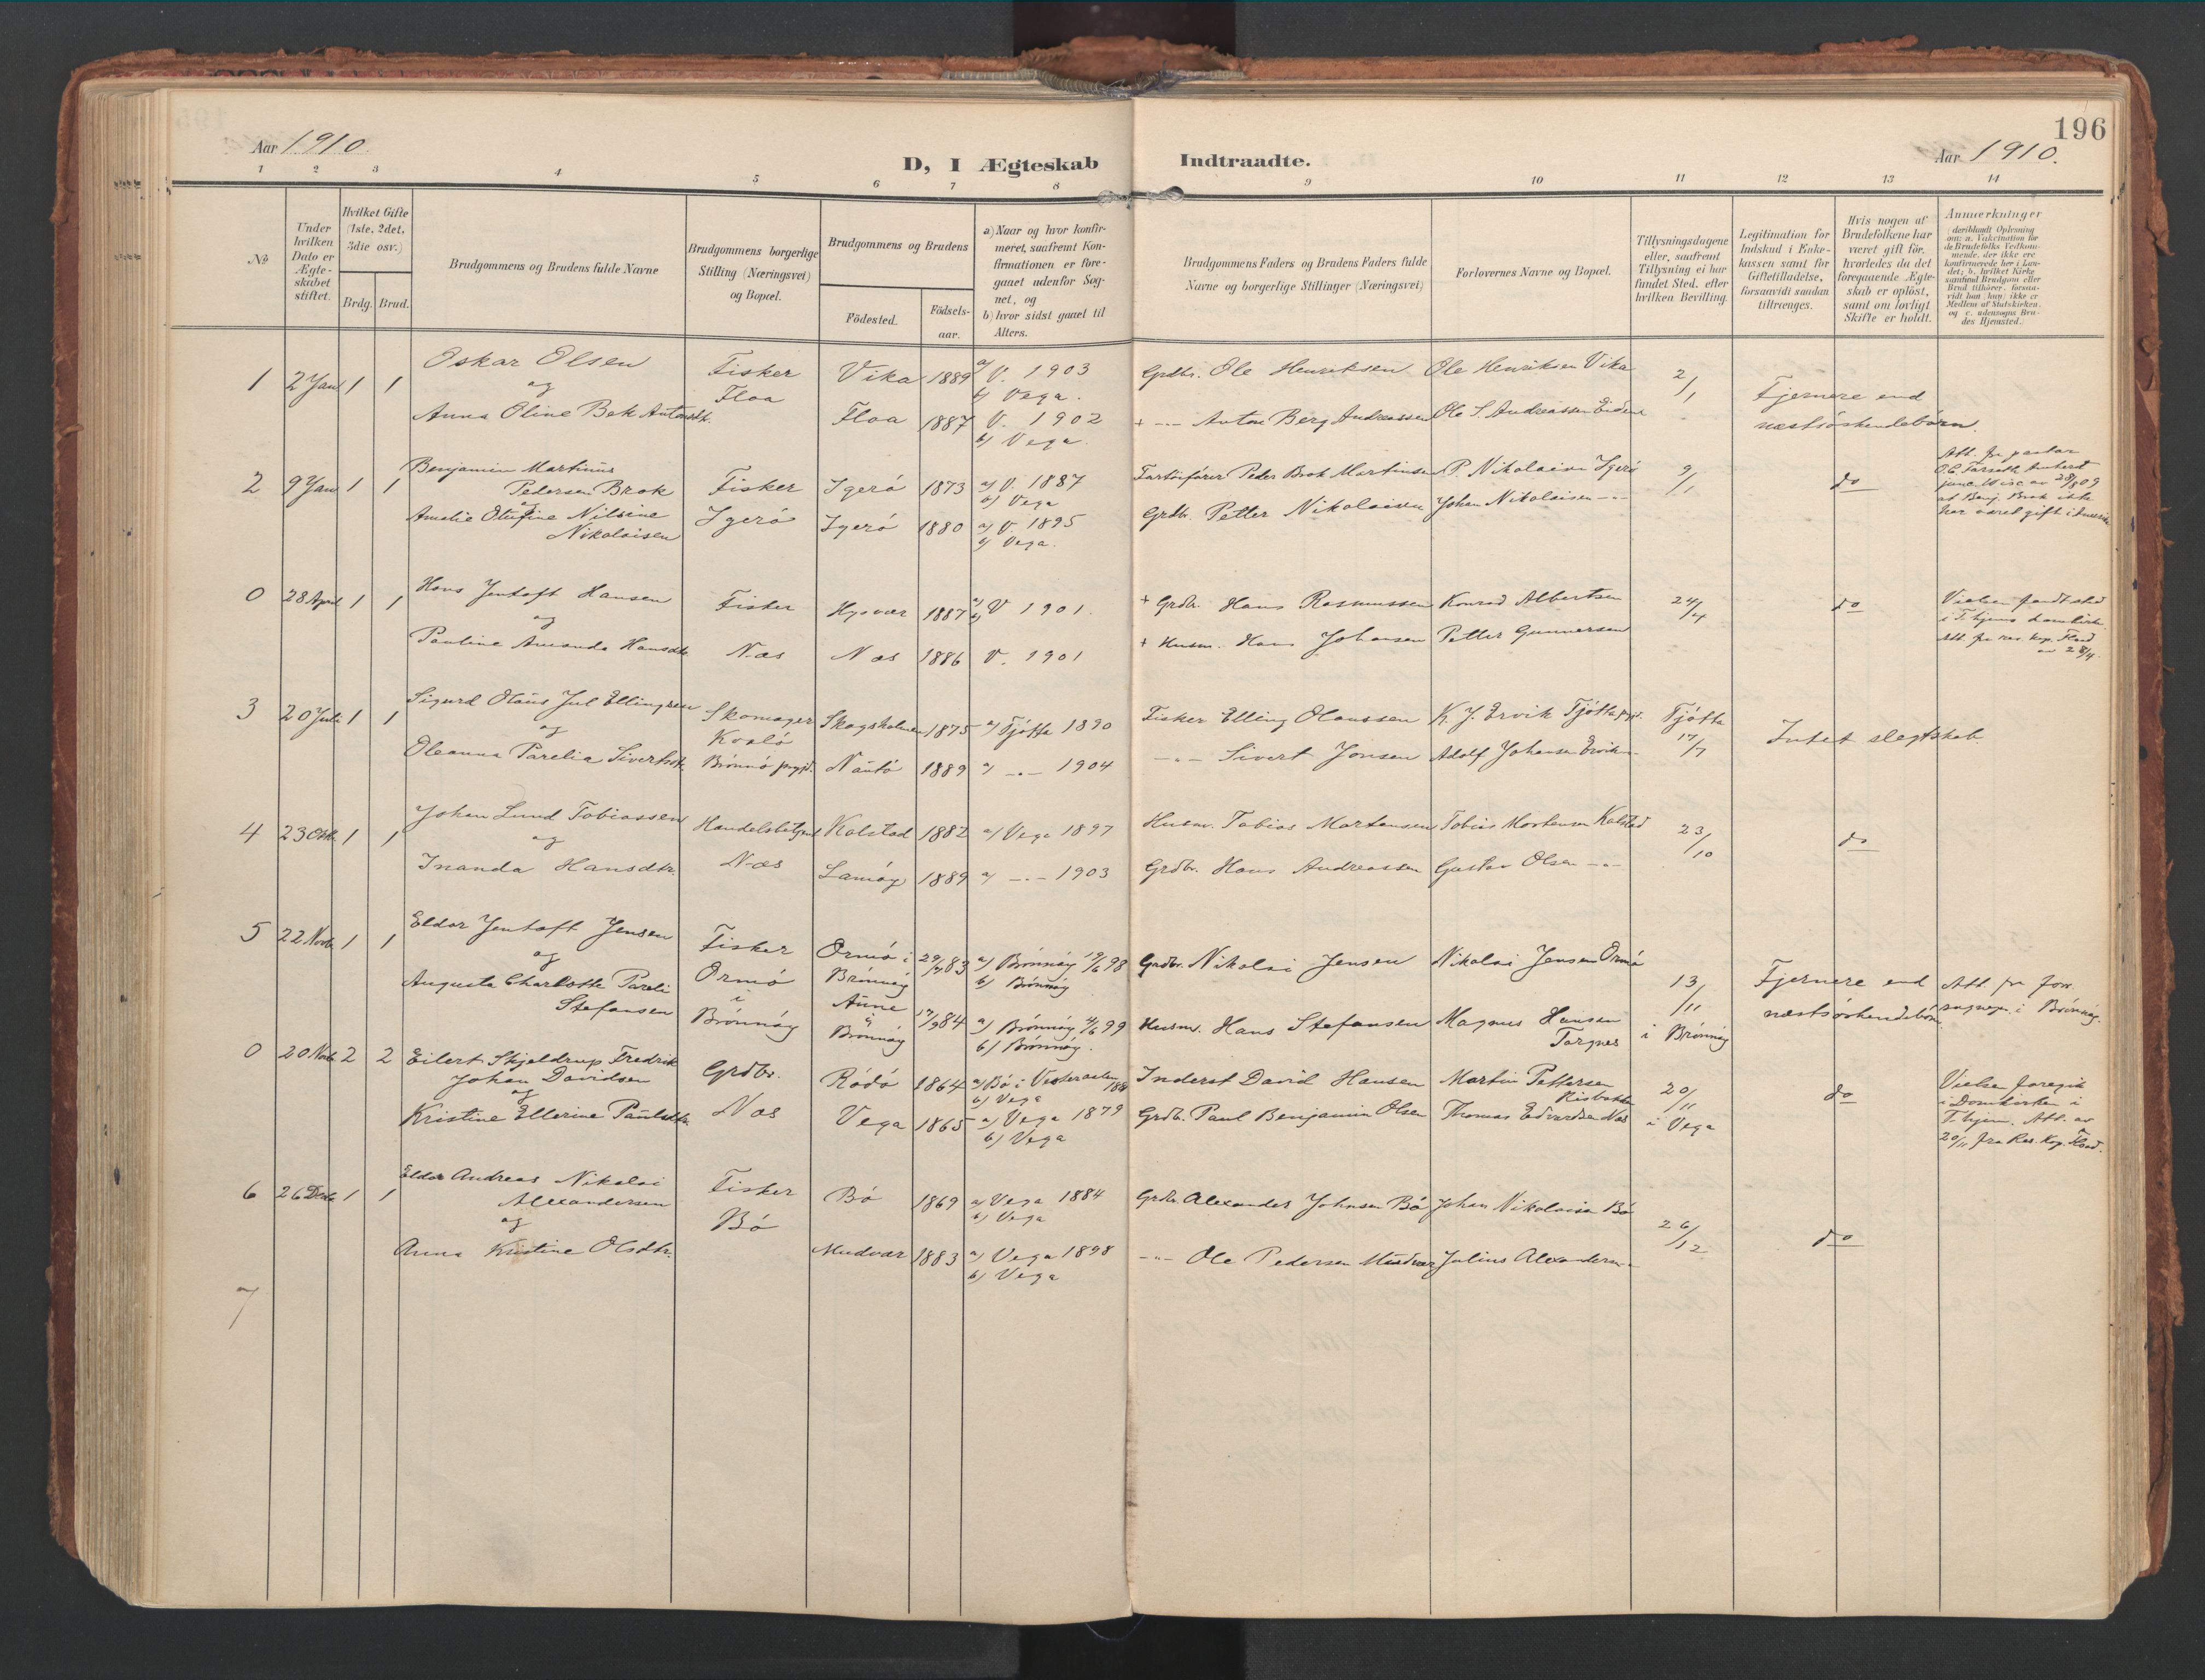 196
Aar 1910.
D, I Ægteskab Indtraadte.
Aar 1910.
1 2 3 4 5 6 7 8 9 10 11 12 13 14
№
Under hvilken Dato er Ægte-skabet stiftet.
Hvilket Gifte (1ste, 2det, 3die osv.)
Brdg. Brud.
Brudgommens og Brudens fulde Navne
Brudgommens borgerlige Stilling (Næringsvei) og Bopæl.
Brudgommens og Brudens
Födested.
Födsels-aar.
a) Naar og hvor konfir-meret, saafremt Kon-firmationen er fore-gaaet udenfor Sog-net, og
b) hvor sidst gaaet til Alters.
Brudgommens Faders og Brudens Faders fulde Navne og borgerlige Stillinger (Næringsvei)
Forlovernes Navne og Bopæl.
Tillysningsdagene eller, saafremt Tillysning ei har fundet Sted, efter hvilken Bevilling.
Legitimation for Indskud i Enke-kassen samt for Giftetilladelse, forsaavidt saadan tiltrænges.
Hvis nogen af Brudefolkene har været gift för, hvorledes da det foregaaende Ægte-skab er oplöst, samt om lovligt Skifte er holdt.
Anmærkninger
(deriblandt Oplysning om: a. Vakcination for de Brudefolks Vedkom-mende, der ikke ere konfirmerede her i Lan-det; b. hvilket Kirke-samfund Brudgom eller Brud tilhörer, forsaa-vidt han (hun) ikke er Medlem af Statskirken, og c. udensogns Bru-des Hjemsted.)
1 2 Jan 1 1 Oskar Olsen Fisker Vika 1889 a) V. 1903 Grdbr. Ole Henriksen Ole Henriksen Vika 2/1 Fjernere end
og Floa b) Vega.
Anna Oline Bek Antonsdtr. Floa 1887 V. 1902 + -"- Anton Berg Andreassen Ole S. Andreassen næstsöskendebörn.
b) Vega.
2 9 Jan 1 1 Benjamin Martinus Fisker Igerö 1873 a) V. 1887 Peder Brok Martinsen P. Nikolaisen Igerö 9/1 do
Pedersen Brok b) Vega
og
Amalie Nilsine Igerö Igerö 1880 a) V. 1895 Grdbr. Petter Nikolaisen Johan Nikolaisen -"-
Nikolaisen b) Vega.
at Benj. Brok ikke
har været gift i
0 28 April 1 1 Hans Jentoft Hansen Fisker Hysvær 1887 a) b) V 1901. + Grdbr. Hans Rasmussen Konrad Albertsen 24/4 do
og
Pauline Amanda Hansdtr. Næs Næs 1886 V. 1901 + Husm. Hans Johansen Petter Gunnarsen
Vielsen fandt sted
i T.hjems domkirke.
Att. fra res. kap. Flood
av 28/4.
3 20 Juli 1 1 Sigurd Olaus Jul Ellingsen Skomager Skogsholmen 1875 a) Tjötta 1890 Fisker Elling Olaussen K. J. Ervik Tjötta prgj. Tjötta
og Kvalö 17/7 Intet slegtskab
Oleanna Parelia Sivertsdtr. Brönnö prgj. Nautö 1889 a) -"- 1904 -"- Sivert Jonsen Adolf Johansen Ervik
4 23 Oktb. 1 1 Johan Lund Tobiassen Handelsbetjent Kalstad 1882 a) Vega 1897 Husm. Tobias Martensen Tobias Mortensen Kalstad 23/10 do
og
Inanda Hansdtr. Næs 1889 a) -"- 1903 Grdbr. Hans Andreassen Gustav Olsen -"-
5 22 Novb. 1 1 Eldor Jentoft Jensen Fisker Ormö i 83 a) Brönnöy 98 Grdbr. Nikolai Jensen Nikolai Jensen Ormö
og Ormö Brönnöy b) Brönnöy
Augusta Charlotte Pareli i Aune 84 a) Brönnöy 4/6 99 Husm. Hans Stefansen Magnus Hansen
Stefansen Brönnöy i Brönnöy b) Brönnöy. Torgnes
13/11 i Brönnöy
Fjernere end
næstsöskendebörn
Att. fra forr.
sognepr. i Brönnöy.
0 20 Novb. 2 2 Eilert Skjeldrup Fredrik Grdbr. Rödö 1864 a) Bö i Vesteraalen b) Vega Inderst David Hansen Martin Pettersen 20/11 do
Johan Davidsen
og
Kristine Ellerine Paulsdtr. Næs Vega 1865 a) Vega 1879 Grdbr. Paul Benjamin Olsen Thomas Edvardsen Næs i Vega
b) Vega
Vielsen foregik
i Domkirken i
T.hjem. Att. av
20/11 fra Res. Kap. Flood.
6 26 Decb. 1 1 Eldor Andreas Nikolai Fisker Bö 1869 a) Vega 1884 Grdbr. Alexander Johnsen Bö Johan Nikolaisen Bö 26/12 do
Alexandersen b) Vega
og Bö
Anna Kristine Olsdtr. Mudvær 1883 a) Vega 1898 -"- Ole Pedersen Mudvær Julius Alexandersen -"-
b) Vega
7